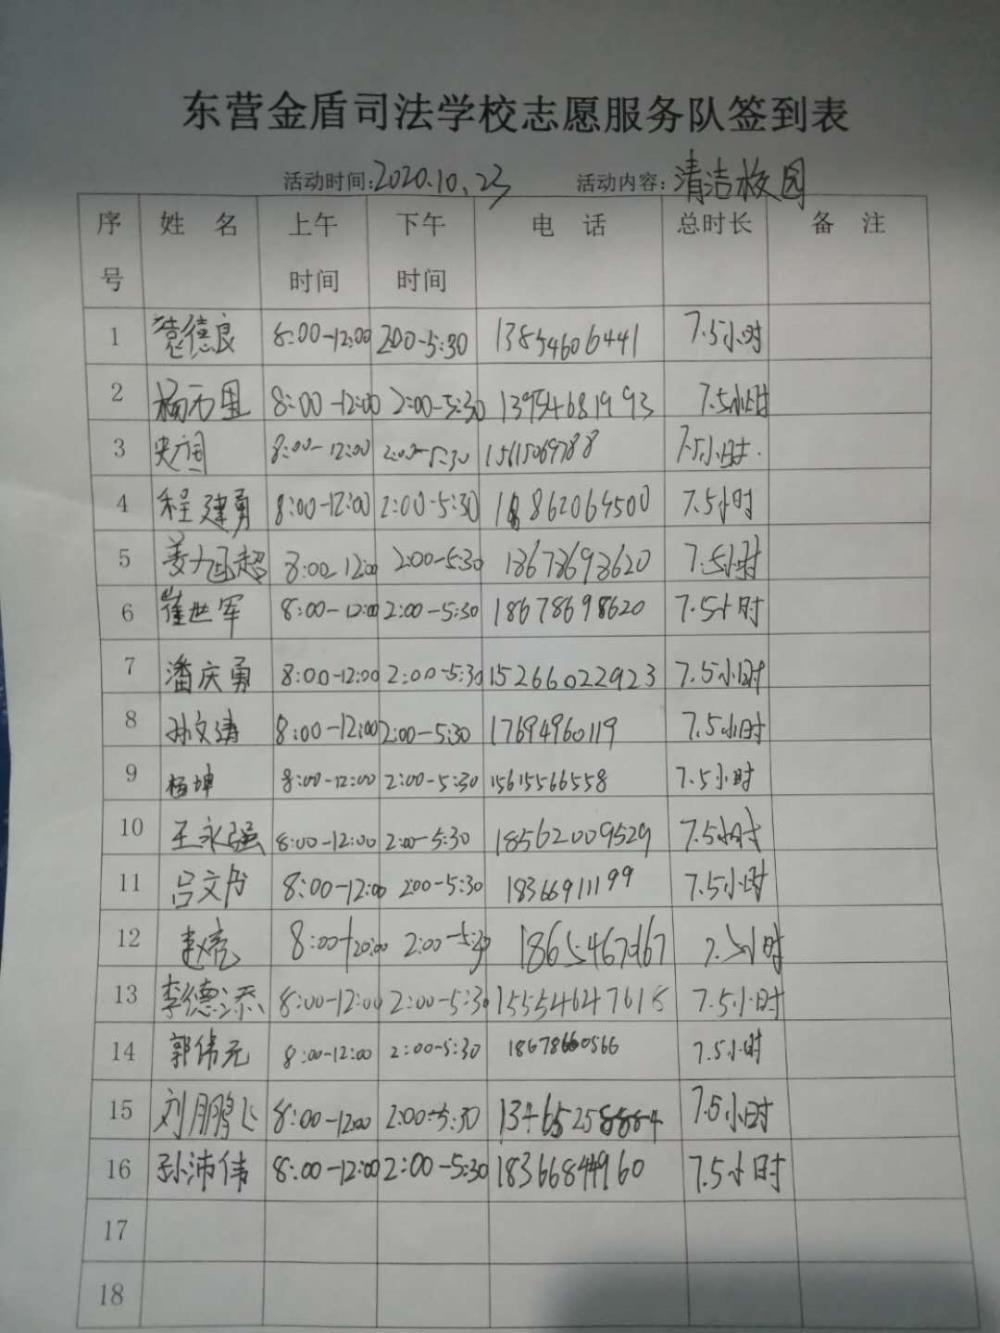 东营金盾司法学校志愿服务队签到表
活动时间:2020.10.23 活动内容:清洁校园
序号 姓 名 上午时间 下午时间 电 话 总时长 备 注
1 德良 8:00-12:00 2:00-5:30 13854606441 7.5小时
2 杨 8:00-12:00 2:00-5:30 13954681993 7.5小时
3 8:00-12:00 2:00-5:30 15615069788 7.5小时.
4 程建勇 8:00-12:00 2:00-5:30 18862064500 7.5小时
5 姜 超 8:00-12:00 2:00-5:30 18678698620 7.5小时
6 崔世军 8:00-12:00 2:00-5:30 18678698620 7.5小时
7 潘庆勇 8:00-12:00 2:00-5:30 15266022923 7.5小时
8 孙文涛 8:00-12:00 2:00-5:30 17694960119 7.5小时
9 杨坤 8:00-12:00 2:00-5:30 15615566558 7.5小时
10 王永强 8:00-12:00 2:00-5:30 18562009529 7.5小时
11 吕文 8:00-12:00 2:00-5:30 18366911199 7.5小时
12 赵亮 8:00 2:00-5:30 7.5小时
13 李德添 8:00-12:00 2:00-5:30 15554647618 7.5小时
14 郭伟元 8:00-12:00 2:00-5:30 18678660566 7.5小时
15 刘鹏飞 8:00-12:00 2:00-5:30 7.5小时
16 孙沛伟 8:00-12:00 2:00-5:30 18366844960 7.5小时
17
18